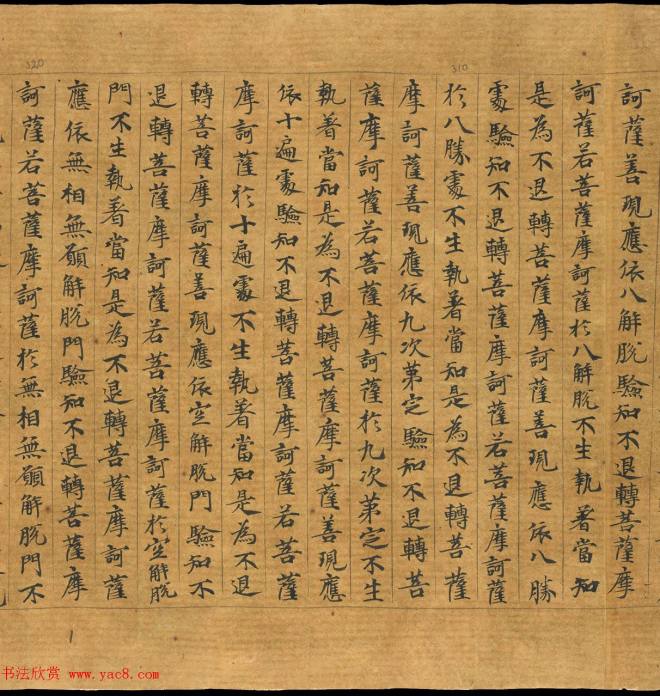 訶薩善現應依八解脫驗知不退轉菩薩摩
訶薩若菩薩摩訶薩於八解脫不生執著當知
是為不退轉菩薩摩訶薩善現應依八勝
處驗知不退轉菩薩摩訶薩若菩薩摩訶薩
於八勝處不生執著當知是為不退轉菩薩
摩訶薩善現應依九次第定驗知不退轉菩
薩摩訶薩若菩薩摩訶薩於九次第定不生
執著當知是為不退轉菩薩摩訶薩善現應
依十遍處驗知不退轉菩薩摩訶薩若菩薩
摩訶薩於十遍處不生執著當知是為不退
轉菩薩摩訶薩善現應依空解脫門驗知不
退轉菩薩摩訶薩若菩薩摩訶薩於空解脫
門不生執著當知是為不退轉菩薩摩訶薩
應依無相無願解脫門驗知不退轉菩薩摩
訶薩若菩薩摩訶薩於無相無願解脫門不
310
320
书法欣赏 www.yac8.com